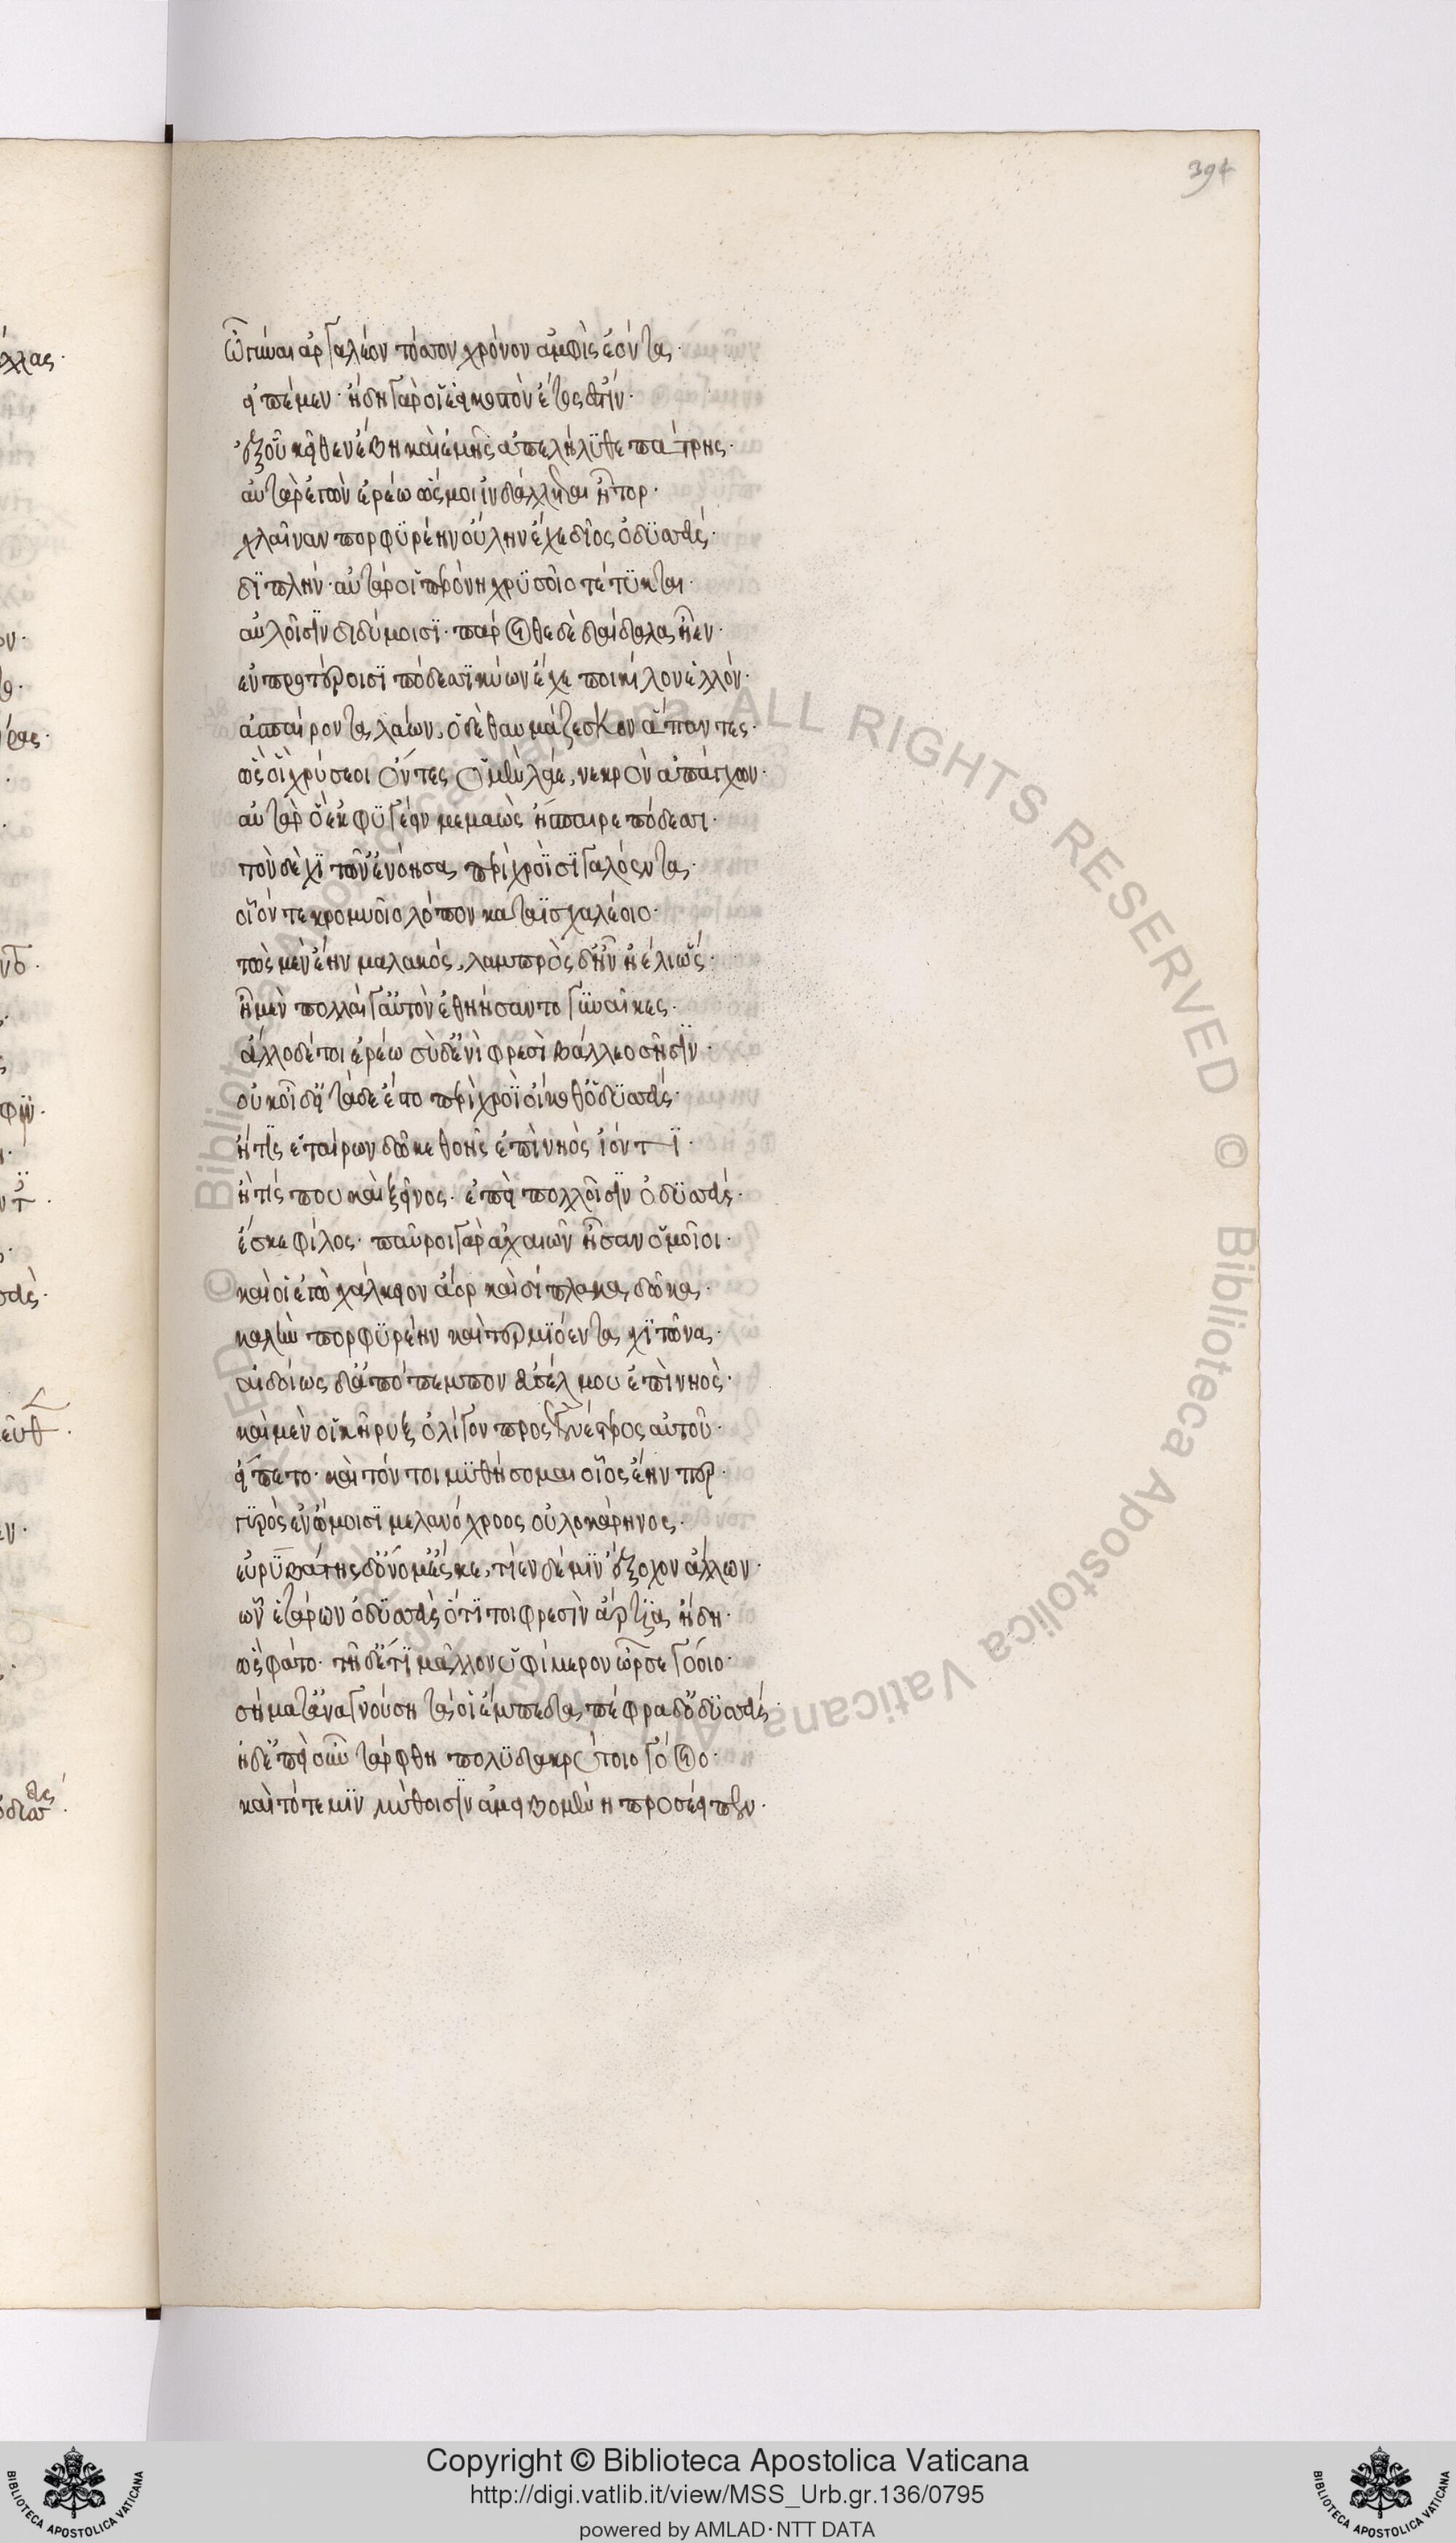 394
Ὦ γύναι ἀργαλέον τόσσον χρόνον ἀμφὶς ἐόντα·
εἰπέμεν· ἤδη γάρ οἱ ἐεικοστὸν ἔτος ἐστίν·
ἐξ οὗ κεῖθεν ἔβη καὶ ἐμῆς ἀπελήλυθε πάτρης·
αὐτὰρ ἐγὼν ἐρέω ὥς μοι ἰνδάλλεται ἦτορ·
χλαῖναν πορφυρέην οὔλην ἔχε δῖος ὀδυσσεύς·
διπλήν· αὐτάρ οἱ περόνη χρυσοῖο τέτυκται·
αὐλοῖσιν διδύμοισι· πάροιθε δὲ δαίδαλα ἦεν·
ἐν προτέροισι πόδεσσι κύων ἔχε ποικίλον ἑλλόν·
ἀσπαίροντα λάων, ὃ δὲ θαυμάζεσκον ἅπαντες·
ὡς οἱ χρύσεοι ὄντες ὁ μὲν λάε, νεκρὸν ἀπάγχων·
αὐτὰρ ὃ ἐκφυγέειν μεμαὼς ἤσπαιρε πόδεσσι·
τὸν δὲ χιτῶν' ἐνόησα περὶ χροῒ σιγαλόεντα·
οἷόν τε κρομύοιο λόπον κάτα ἰσχαλέοιο·
τὼς μὲν ἔην μαλακός, λαμπρὸς δ' ἦν ἠέλιος ὥς·
ἦ μὲν πολλαί γ' αὐτὸν ἐθηήσαντο γυναῖκες·
ἄλλο δέ τοι ἐρέω σὺ δ' ἐνὶ φρεσὶ βάλλεο σῇσιν·
οὐκ οἶδ' εἰ τάδε ἕστο περὶ χροῒ οἴκοθ' ὀδυσσεύς·
ἤ τις ἑταίρων δῶκε θοῆς ἐπὶ νηὸς ἰόντι·
ἤ τίς που καὶ ξεῖνος· ἐπεὶ πολλοῖσιν ὀδυσσεύς·
ἔσκε φίλος· παῦροι γὰρ ἀχαιῶν ἦσαν ὁμοῖοι·
καί οἱ ἐγὼ χάλκειον ἄορ καὶ δίπλακα δῶκα·
καλὴν πορφυρέην καὶ τερμιόεντα χιτῶνα·
αἰδοίως δ' ἀπόπεμπον ἐϋσσέλμου ἐπὶ νηός·
καὶ μέν οἱ κῆρυξ ὀλίγον προγενέστερος αὐτοῦ·
εἵπετο· καὶ τόν τοι μυθήσομαι οἷος ἔην περ·
γυρὸς ἐν ὤμοισι μελανόχροος οὐλοκάρηνος·
εὐρυβάτης δ' ὄνομ' ἔσκε, τίεν δέ μιν ἔξοχον ἄλλων·
ὧν ἑτάρων ὀδυσσεὺς ὅτι τοι φρεσὶν ἄρτια ᾔδη·
ὣς φάτο· τῇ δ' ἔτι μᾶλλον ὑφ' ἵμερον ὦρσε γόοιο·
σήματ' ἀναγνούσῃ τά οἱ ἔμπεδα πέφραδ' ὀδυσσεύς·
ἡ δ' ἐπεὶ οὖν τάρφθη πολυδακρύτοιο γόοιο·
καὶ τότε μιν μύθοισιν ἀμειβομένη προσέειπεν·
Copyright © Biblioteca Apostolica Vaticana
http://digi.vatlib.it/view/MSS_Urb.gr.136/0795
powered by AMLAD·NTT DATA